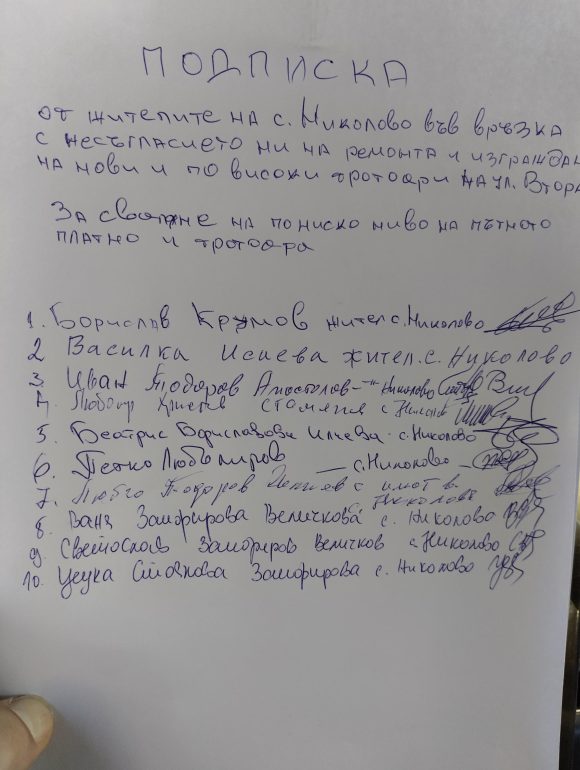 ПОДПИСКА
от жителите на с. Николово във връзка
с несъгласието ни на ремонта и изграждан
на нови и по високи тротоари на ул. Втора
За сваляне на по ниско ниво на пътното
платно и тротоара
1. Борислав Крумов жител с. Николово
2 Василка Исаева жител. с. Николово
3. Иван Тодоров Апостолов - Николово
4. Любомир Христов с Николово
5. Беатрис Бориславова Илиева с. Николово
6. Петко Любомиров с. Николово
7. Тодоров с имот в
Николово
8. Ваня Замфирова Величкова с. Николово
9. Светослав Замфиров Величков с. Николово
10. Цеука Стоянова Замфирова с. Николово